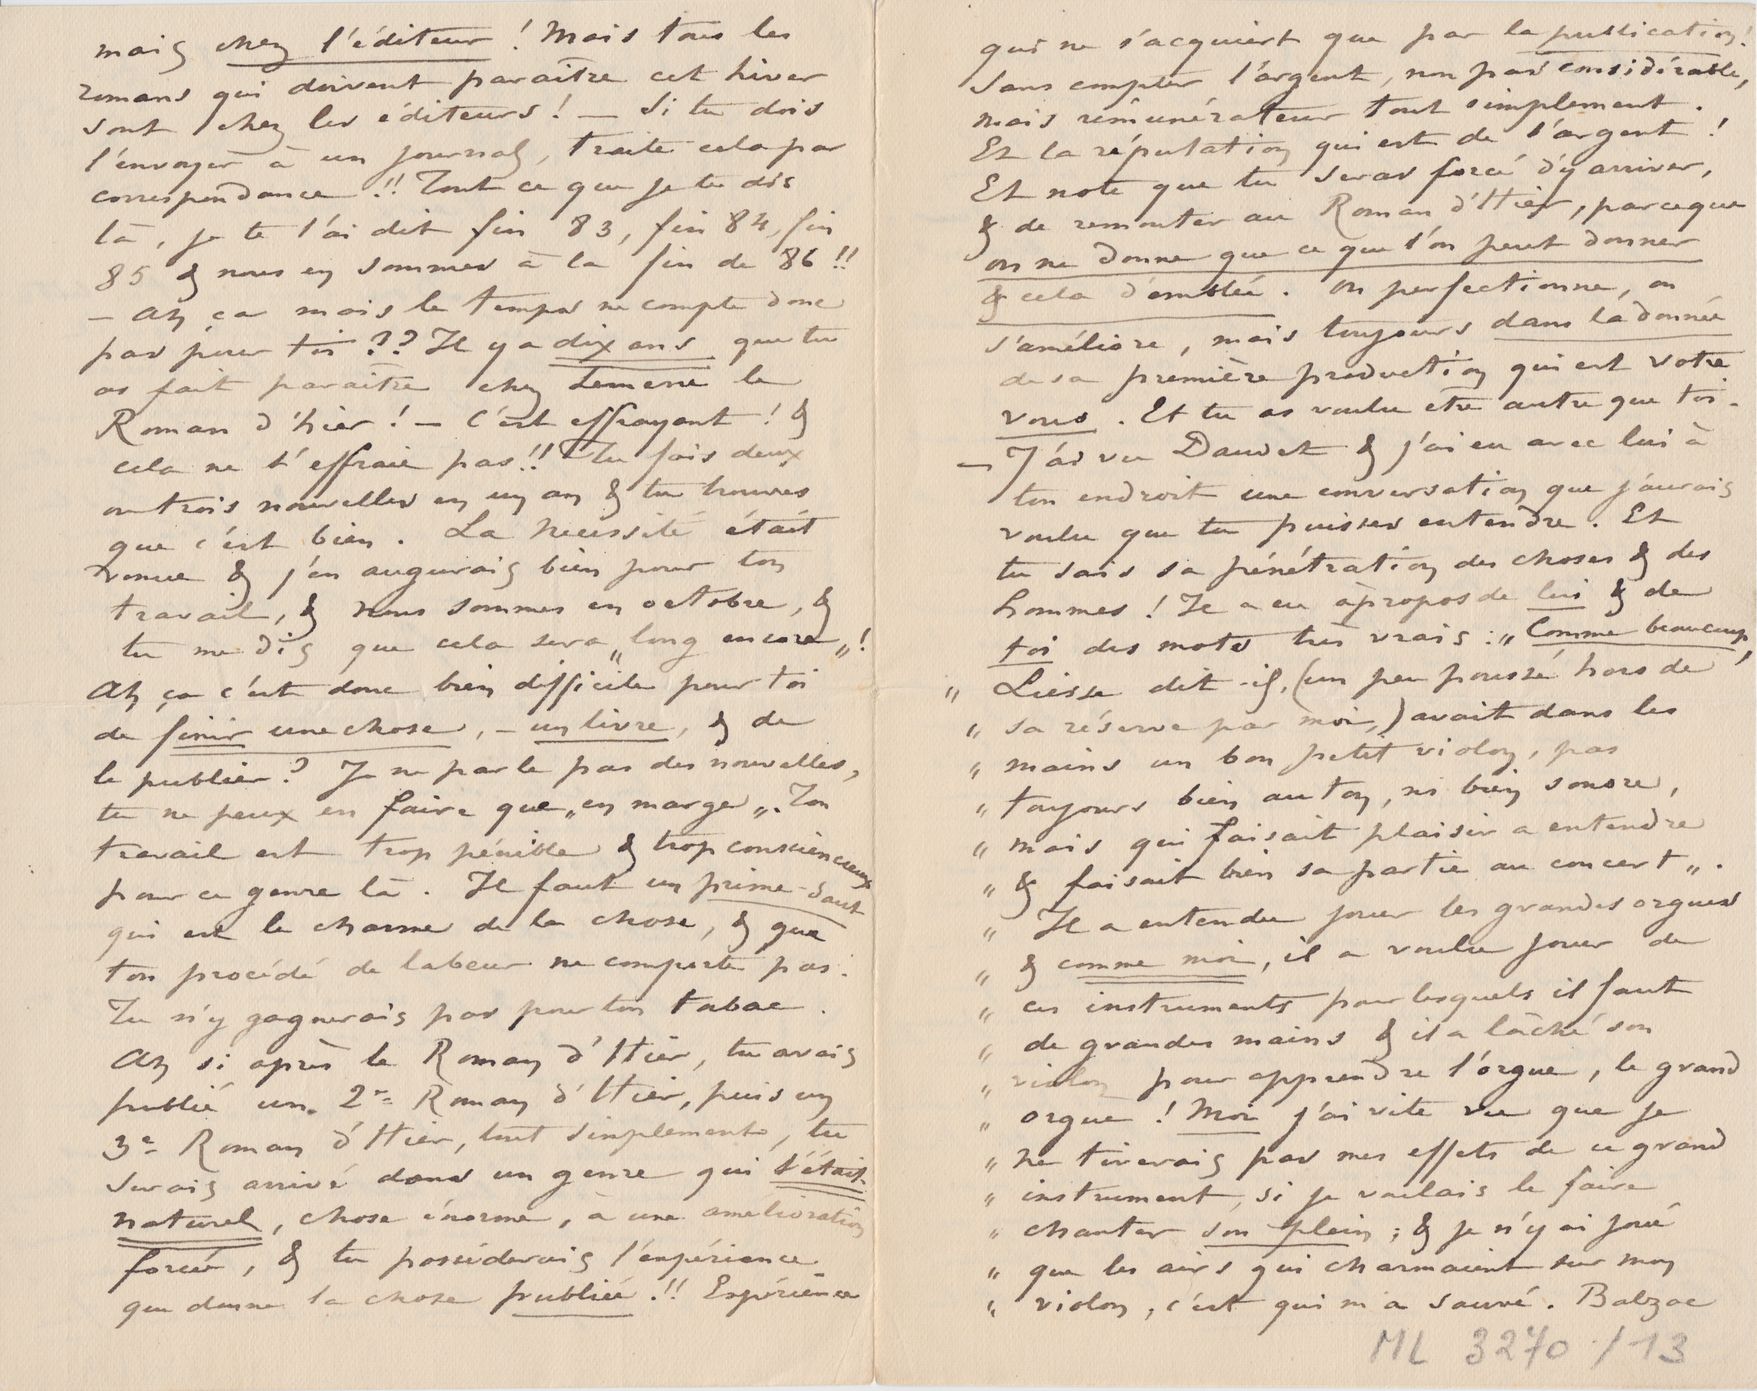 mais chez l'éditeur ! Mais tous les
romans qui doivent paraitre cet hiver
sont chez les éditeurs ! — Si tu dois
l'envoyer à un journal, traite cela par
correspondance !! Tout ce que je te dis
là, je te l'ai dit fin 83, fin 84, fin
85 & nous en sommes à la fin de 86 !!
— Ah ça mais le temps ne compte donc
pas pour toi ?? Il y a dix ans que tu
as fait paraitre chez Lemerre le
Roman d'hier ! — C'est effrayant ! &
cela ne t'effraie pas !! Tu fais deux
ou trois nouvelles en un an & tu trouves
que c'est bien. La nécessité était
venue & j'en augurais bien pour ton
travail, & nous sommes en octobre, &
tu me dis que cela sera „long encore„ !
Ah ça c'est donc bien difficile pour toi
de finir une chose, — un livre, & de
le publier ? Je ne parle pas des nouvelles,
tu ne peux en faire que „en marge„. Ton
travail est trop pénible & trop consciencieux
pour ce genre là. Il faut un prime-saut
qui est le charme de la chose, & que
ton procédé de labeur ne comporte pas.
Tu n'y gagnerais pas pour ton tabac.
Ah si après le Roman d'Hier, tu avais
publié un 2e Roman d'Hier, puis un
3e Roman d'Hier, tout simplement, tu
serais arrivé dans un genre qui t'était
naturel, chose énorme, à une amélioration
forcée, & tu posséderais l'expérience
que donne la chose publiée !! Expérience
qui ne s'acquiert que par la publication !
Sans compter l'argent, non pas considérable,
mais rémunérateur tout simplement.
Et la réputation qui est de l'argent !
Et note que tu seras forcé d'y arriver,
& de remonter au Roman d'Hier, parceque
on ne donne que ce que l'on peut donner
& cela d'emblée. On perfectionne, on
s'améliore, mais toujours dans la donnée
de sa première production qui est votre
vous. Et tu as voulu etre autre que toi.
— J'ai vu Daudet & j'ai eu avec lui à
ton endroit une conversation que j'aurais
voulu que tu puisses entendre. Et
tu sais sa pénétration des choses & des
hommes ! Il a eu àpropos de lui & de
toi des mots très vrais : „Comme beaucoup,
„ Liesse dit-il, (un peu poussé hors de
„ sa réserve par moi,) avait dans les
„ mains un bon petit violon, pas
„ toujours bien au ton, ni bien sonore,
„ mais qui faisait plaisir a entendre
„ & faisait bien sa partie au concert„.
„ Il a entendu jouer les grandes orgues
„ & comme moi, il a voulu jouer de
„ ces instruments pour lesquels il faut
„ de grandes mains & il a lâché son
„ violon pour apprendre l'orgue, le grand
„ orgue ! Moi j'ai vite vu que je
„ ne tirerais pas mes effets de ce grand
„ instrument, si je voulais le faire
„ chanter son plein ; & je n'y ai joué
„ que les airs qui charmaient sur mon
„ violon, c'est qui m'a sauvé. Balzac
ML 3270 / 13